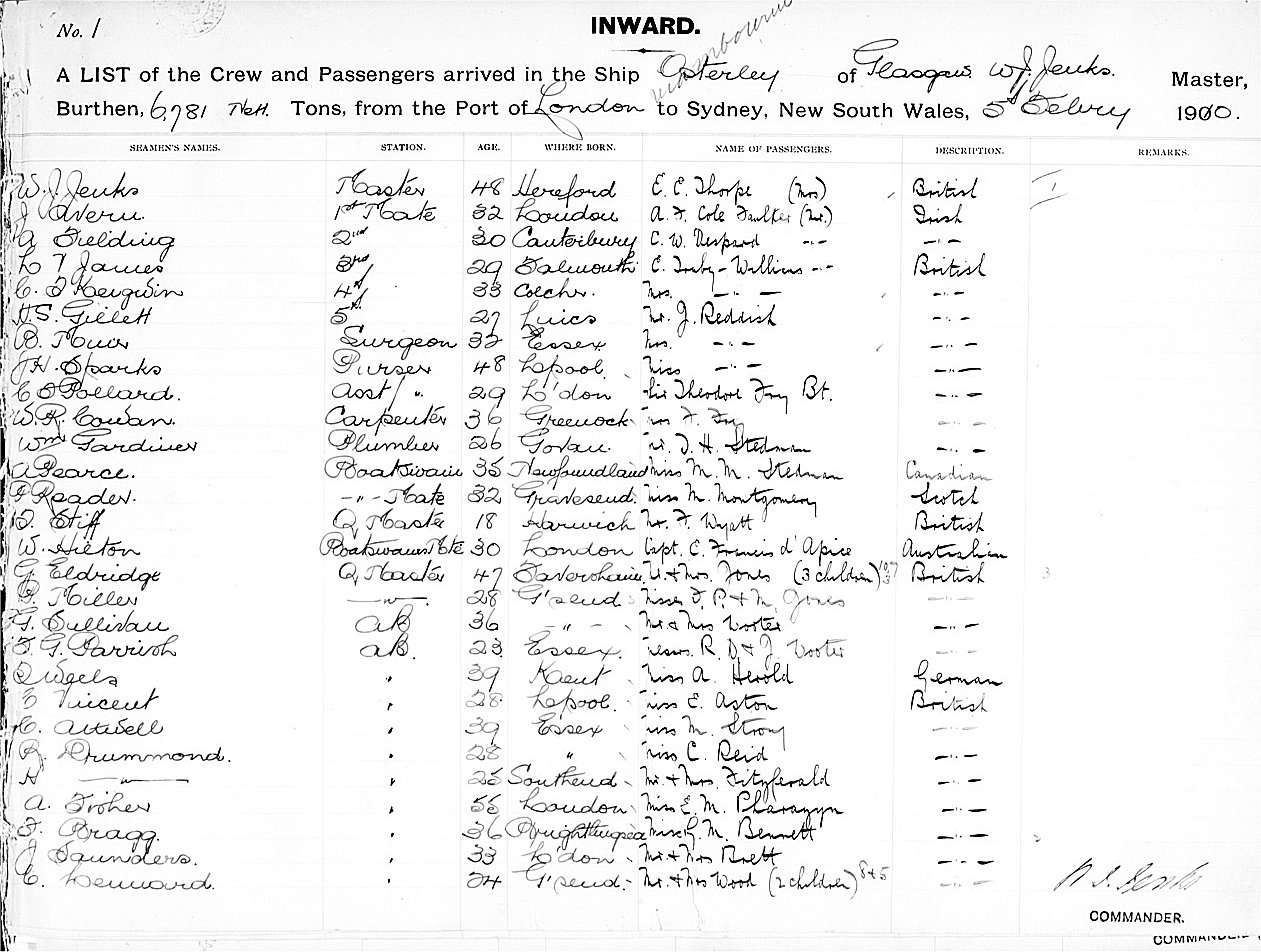 No. 1
INWARD.
via Melbourne
A LIST of the Crew and Passengers arrived in the Ship Osterley of Glasgow. W J. Jenks. Master,
Burthen, 6,781 Nett. Tons, from the Port of London to Sydney, New South Wales, 5th Febry 1910.
SEAMEN'S NAMES. STATION. AGE. WHERE BORN. NAME OF PASSENGERS. DESCRIPTION. REMARKS.
W. J. Jenks Master 48 Hereford E. E. Thorpe (Mrs) British 1
J Avern. 1st Mate 32 London A. F. Cole (Mr.) Irish
A Fielding 2nd 30 Canterbury C. W. Despard -"- -"-
L T James 3rd 29 Falmouth C. -"- British
4th 33 Colchr. Mrs. -"- -"-
H. S. Gillett 5th 27 Mr. J. Reddish -"-
B. Surgeon 32 Essex Mrs. -"- -"-
J H. Sparks Purser 48 L'pool. Miss -"- -"-
C Pollard. Asst / ". 29 L'don Sir Theodore Fry Bt. -"-
W. R. Cowan. Carpenter 36 Greenock Miss F. Fry -"-
Wm Gardiner Plumber 26 Govan. Mr. H. Stedman -"-
A Pearce. Boatswain 35 Newfoundland Miss M. M. Stedman Canadian
Reader. -"- Mate 32 Gravesend. Miss M. Montgomery Scotch
Stiff Q. Master 18 Harwich Mr. F. Wyatt British
W. Hilton Boatswains Mte 30 London Capt. C. Francis d'Apice Australian
G Eldridge Q. Master 47 Faversham Mr. & Mrs. Jones (3 children) 10, 7 3 British 3
Miller -"-. 28 G'send. Misses F. P. & M. Jones -"-
G. Sullivan AB 36 -"- Mr & Mrs Wooter -"-
F. G. Parrish AB. 23 Essex. R. D & J. Wooter -"-
" 39 Kent Miss A. Herold German
Vincent " 28 L'pool. Miss E. Aston British
C. Attwell " 39 Essex Miss M. Strong -"-
R. Drummond. " 28 " Miss C. Reid -"-
H -"- " 25 Southend Mr. & Mrs. Fitzgerald -"-
A. Fisher " 55 London Miss E. M. Pharazyn -"-
F. Bragg. " 36 Brightlingsea Miss G. M. Bennett -"-
J Saunders. " 33 L'don Mr & Mrs Brett -"-
C. Lennard. " 24 G'send. Mr. & Mrs Wood (2 children) 8 & 5 -"-
W. J. Jenks
COMMANDER.
COMMANDER